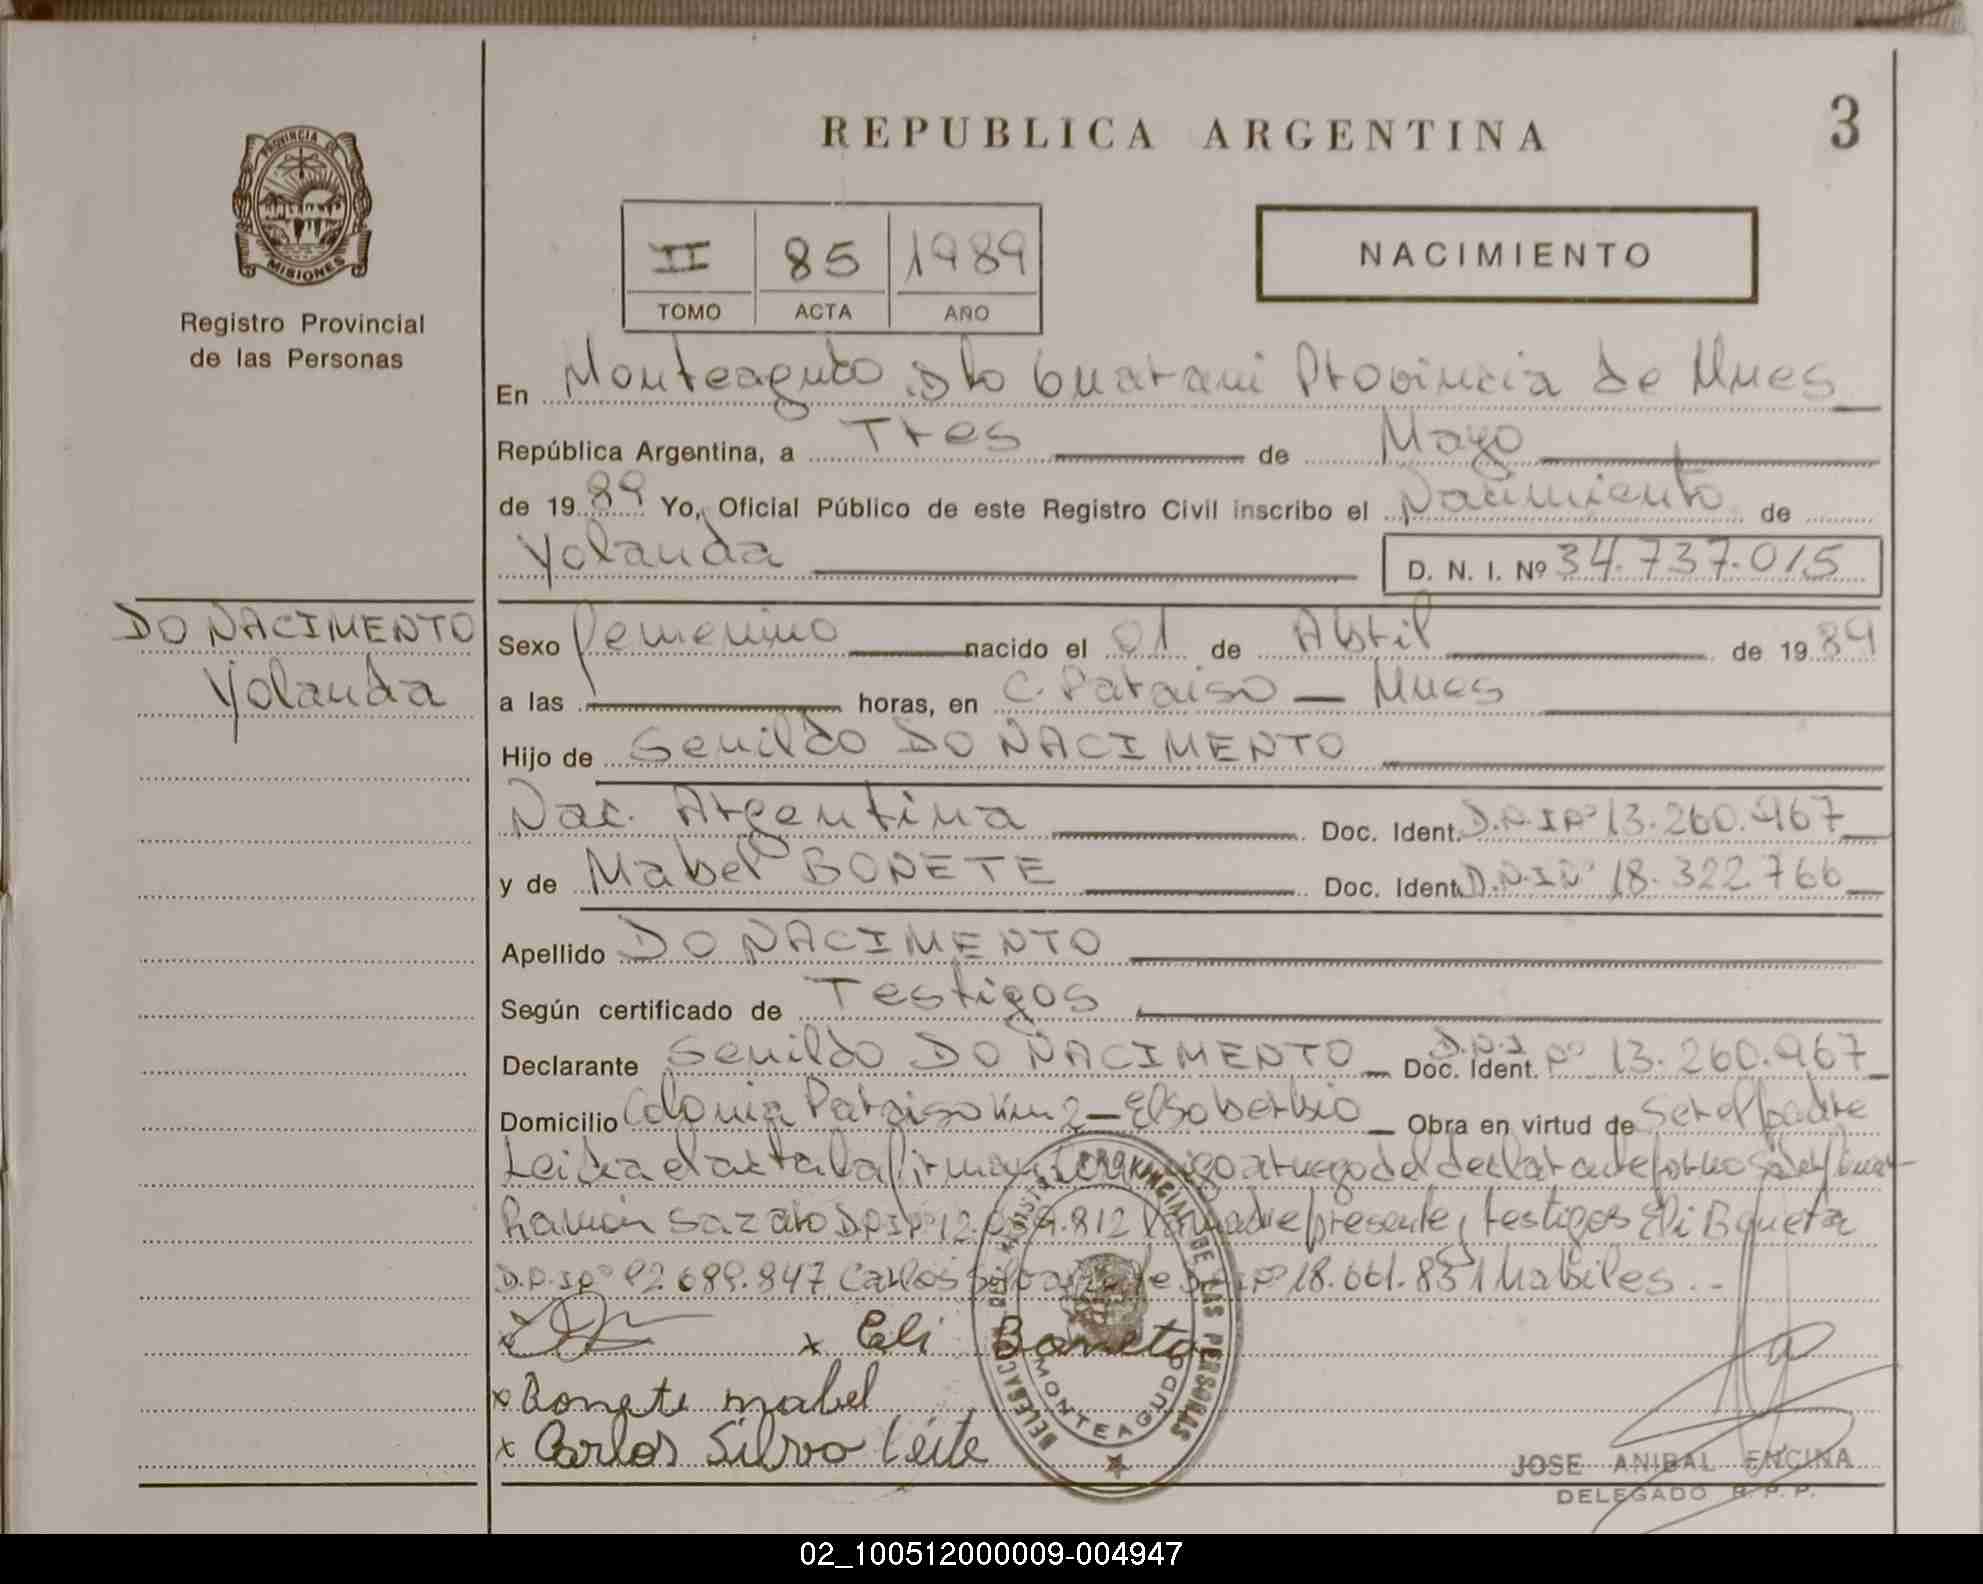 REPUBLICA ARGENTINA
3
PROVINCIA DE
MISIONES
Registro Provincial
de las Personas
II 85 1989
TOMO ACTA AÑO
NACIMIENTO
En Monteagudo Dto Guarani Provincia de Mnes
República Argentina, a Tres de Mayo
de 1989 Yo, Oficial Público de este Registro Civil inscribo el Nacimiento de
Yolanda D. N. I. Nº 34.737.015
DO NACIMENTO
Yolanda
Sexo femenino nacido el 01 de Abril de 1989
a las horas, en C. Paraiso — Mnes
Hijo de Genildo DO NACIMENTO
Nac. Argentina Doc. Ident. D.N.I Nº 13.260.967
y de Mabel BONETE Doc. Ident. D.N.I Nº 18.322.766
Apellido DO NACIMENTO
Según certificado de Testigos
Declarante Genildo DO NACIMENTO Doc. Ident. D.N.I Nº 13.260.967
Domicilio Colonia Paraiso Km 2 — El Soberbio Obra en virtud de ser el padre
Leida el acta la firman conmigo a ruego del declarante por no saber firmar
Ramón D.N.I Nº 12. .812 madre presente, testigos Eli Boneta
D.N.I Nº 92.689.847 Carlos Nº 18.661.831 habiles..-
x x Eli Boneta
x Bonete mabel
x Carlos Silvo Leite
DELEGACION DEL REGISTRO PROVINCIAL DE LAS PERSONAS
MONTEAGUDO
JOSE ANIBAL ENCINA
DELEGADO R. P. P.
02_100512000009-004947